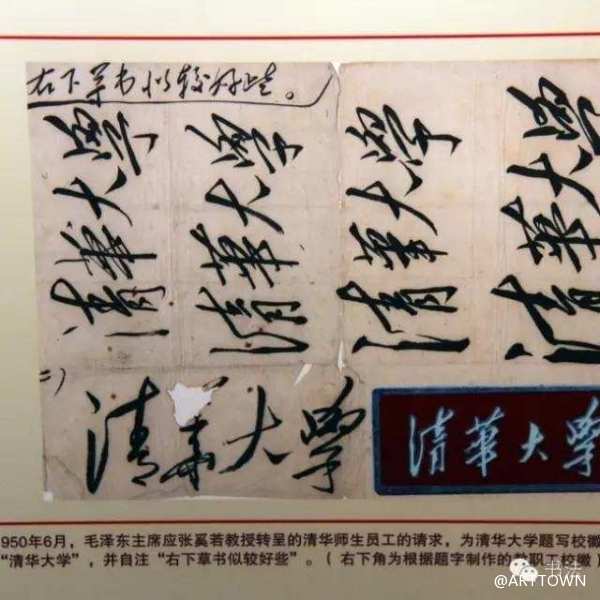 右下草书似较好些。
清華大學
清華大學
清華大學
清華大學
二)
清華大學
清華大學
950年6月，毛泽东主席应张奚若教授转呈的清华师生员工的请求，为清华大学题写校徽
“清华大学”，并自注“右下草书似较好些”。（右下角为根据题字制作的教职工校徽）
书法
@ARTTOWN